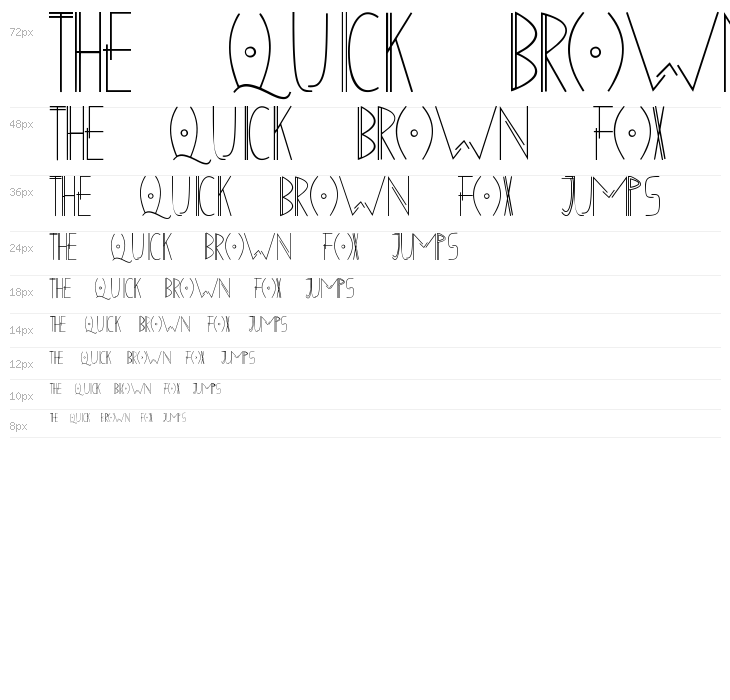 72px THE QUICK BROWN
48px THE QUICK BROWN FOX
36px THE QUICK BROWN FOX JUMPS
24px THE QUICK BROWN FOX JUMPS
18px THE QUICK BROWN FOX JUMPS
14px THE QUICK BROWN FOX JUMPS
12px THE QUICK BROWN FOX JUMPS
10px THE QUICK BROWN FOX JUMPS
8px THE QUICK BROWN FOX JUMPS